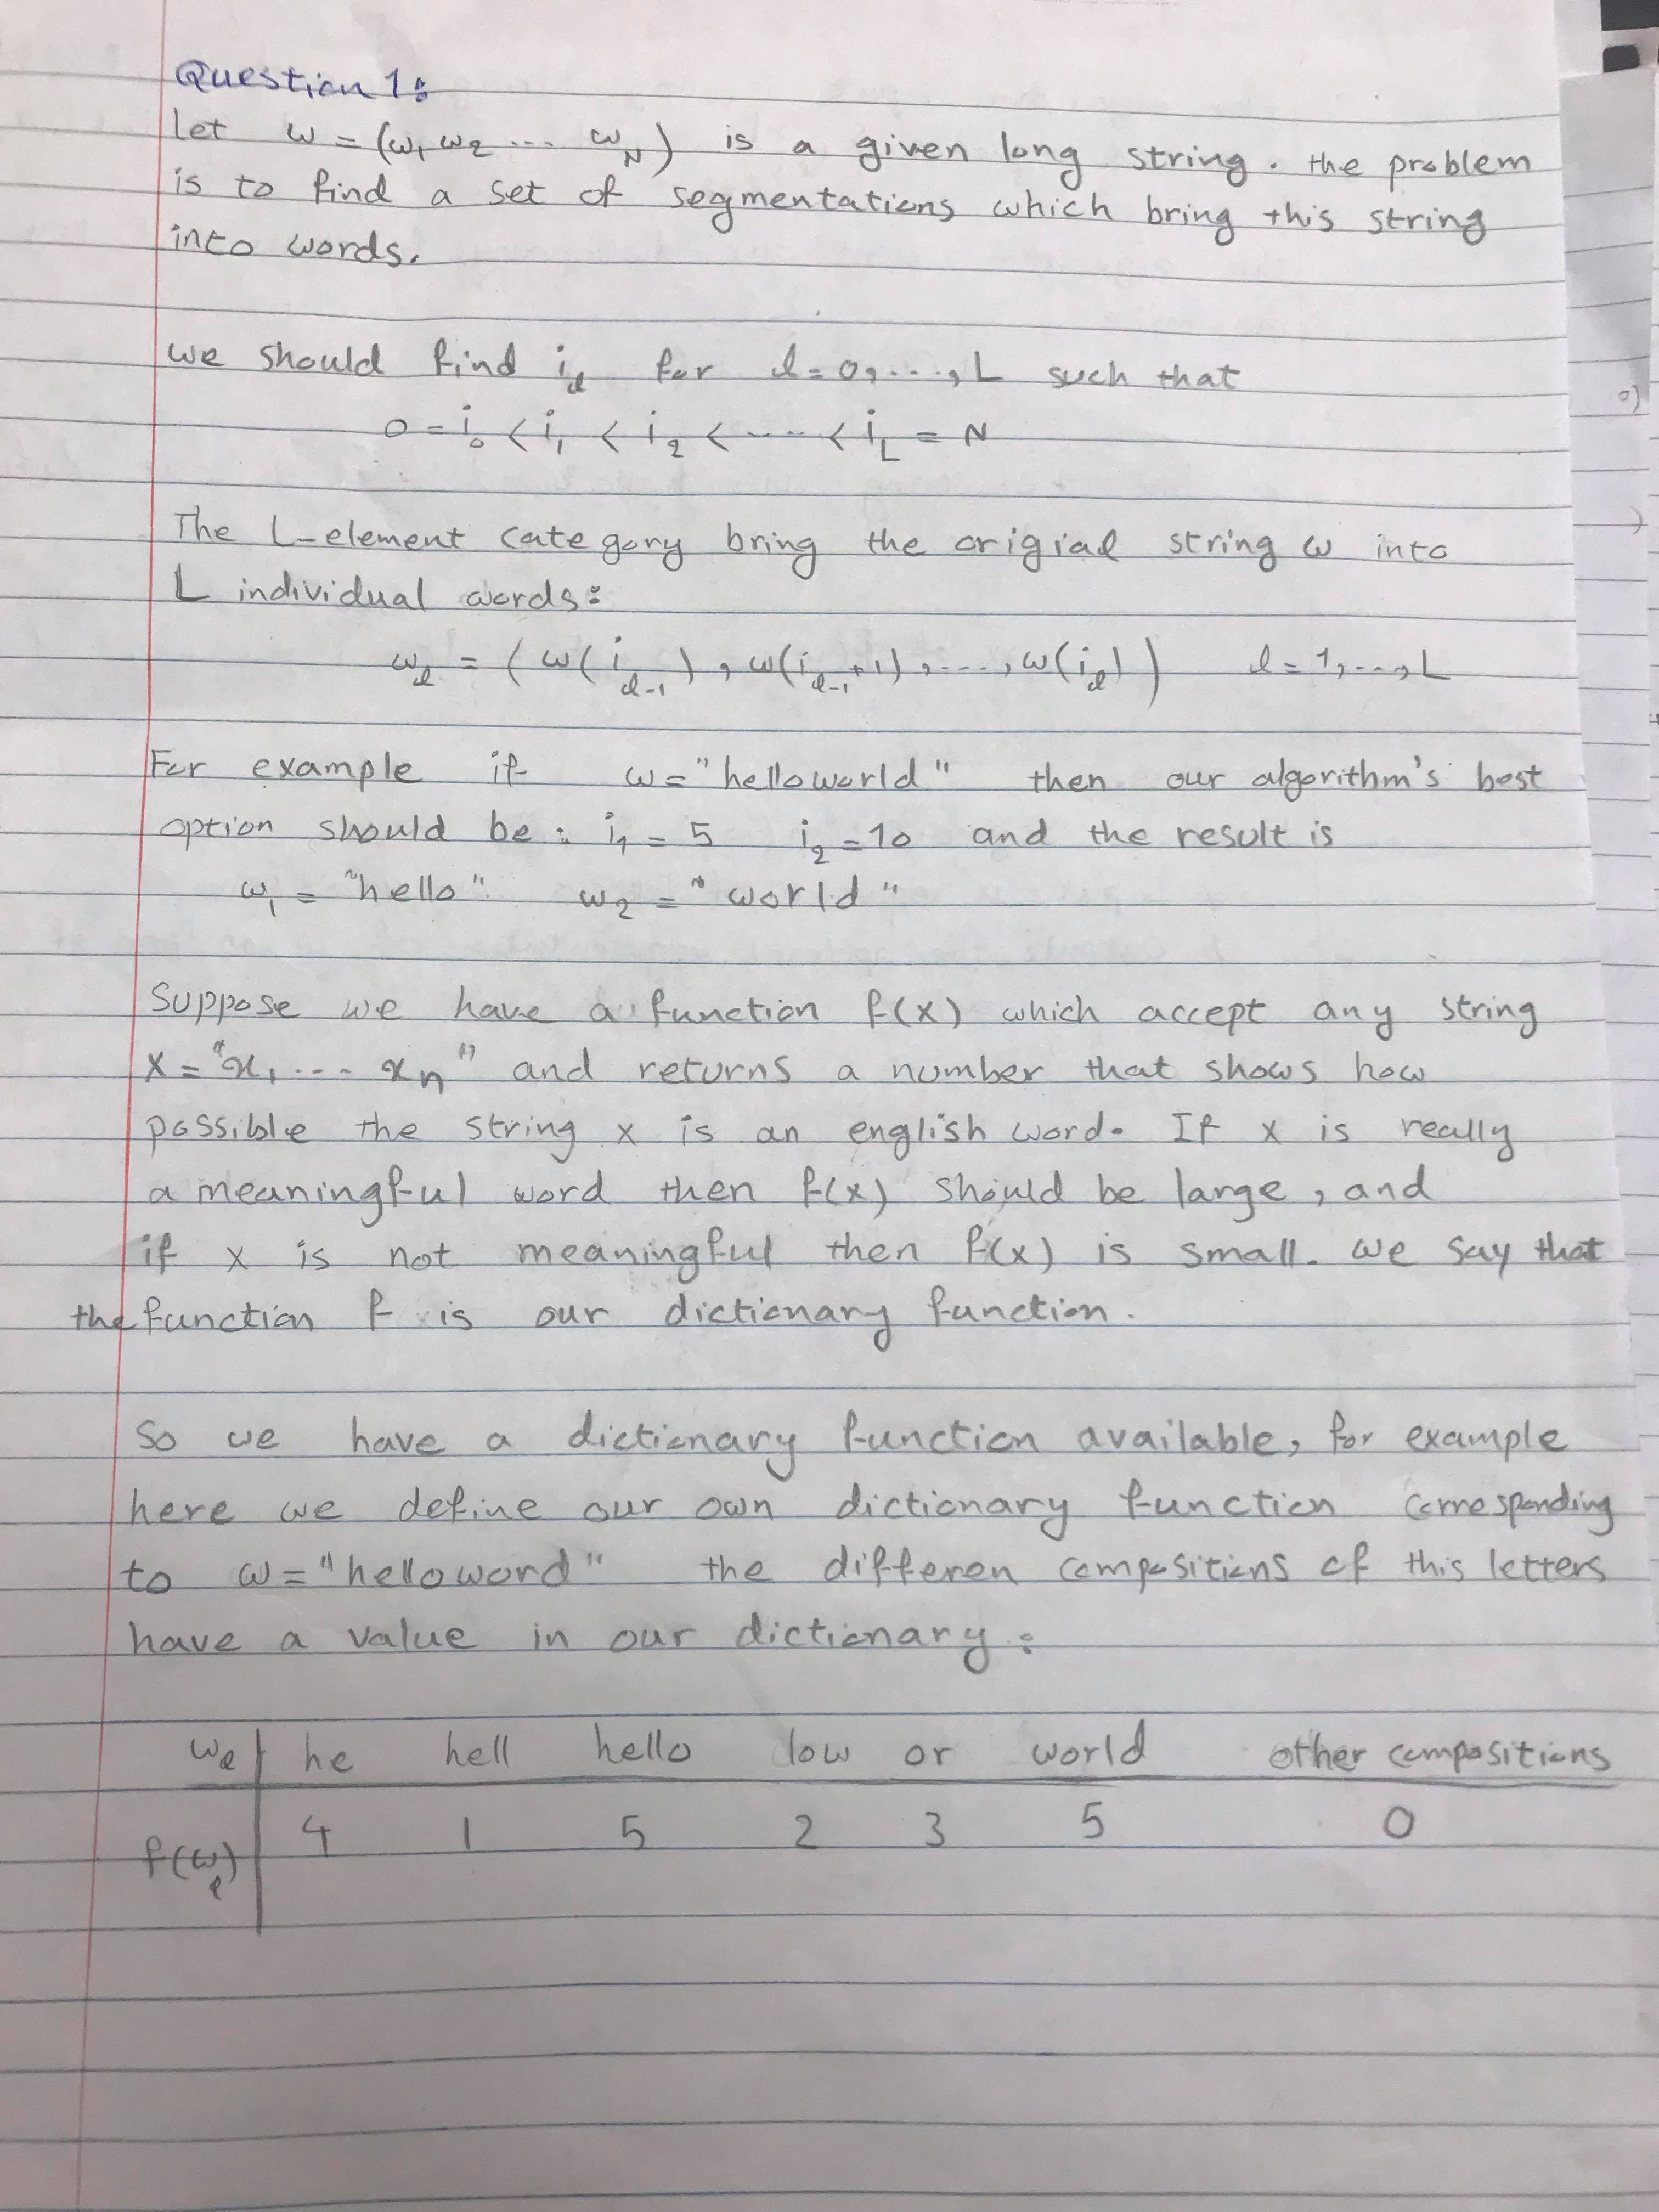 Question 1:
Let ω = (ω₁ ω₂ ... ω_N) is a given long string. the problem
is to find a set of segmentations which bring this string
into words.
we should find i_l for l=0,...,L such that
0 = i₀ < i₁ < i₂ < ... < i_L = N
The L-element category bring the origial string ω into
L individual words:
ω_l = (ω(i_{l-1}), ω(i_{l-1}+1), ..., ω(i_l)) l = 1, ..., L
For example if ω="helloworld" then our algorithm's best
option should be: i₁ = 5 i₂ = 10 and the result is
ω₁ = "hello" ω₂ = "world"
Suppose we have a function f(x) which accept any string
x = "x₁ ... x_n" and returns a number that shows how
possible the string x is an english word. If x is really
a meaningful word then f(x) should be large, and
if x is not meaningful then f(x) is small. we say that
the function f is our dictionary function.
So we have a dictionary function available, for example
here we define our own dictionary function corresponding
to ω = "helloword" the differen compositions of this letters
have a value in our dictionary:
ω_l he hell hello low or world other compositions
f(ω_l) 4 1 5 2 3 5 0